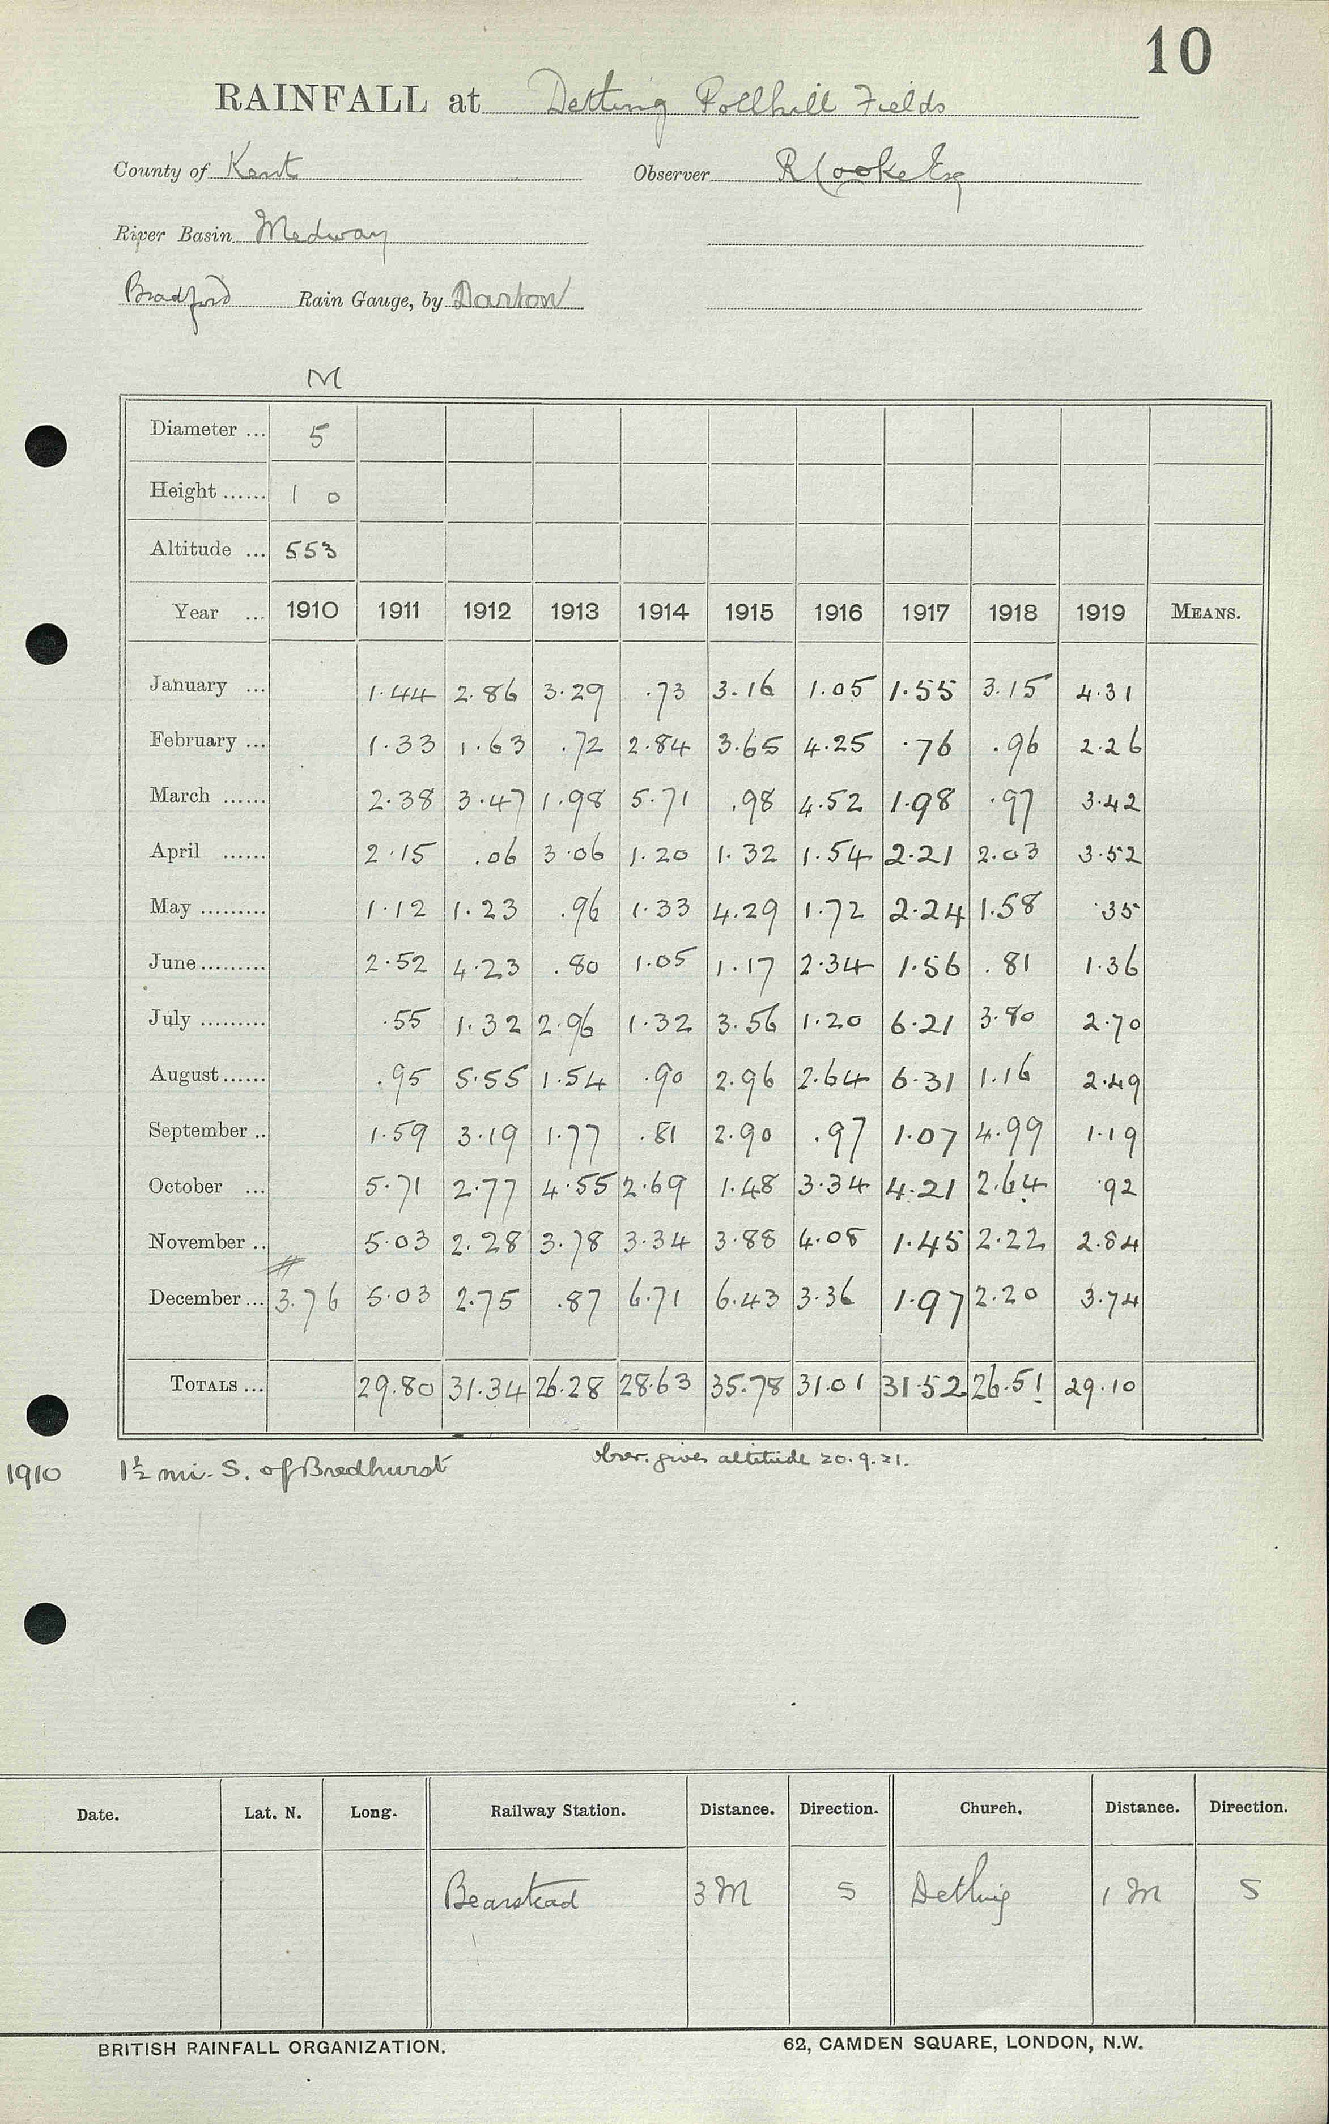 10
RAINFALL at Detting Pollhill Fields
County of Kent Observer R Cooke Esq
River Basin Medway
Bradford Rain Gauge, by Darton
M
Diameter ... 5
Height ...... 1 0
Altitude ... 553
Year ... 1910 1911 1912 1913 1914 1915 1916 1917 1918 1919 MEANS.
January ... 1.44 2.86 3.29 .73 3.16 1.05 1.55 3.15 4.31
February ... 1.33 1.63 .72 2.84 3.65 4.25 .76 .96 2.26
March ...... 2.38 3.47 1.98 5.71 .98 4.52 1.98 .97 3.42
April ...... 2.15 .06 3.06 1.20 1.32 1.54 2.21 2.03 3.52
May ......... 1.12 1.23 .96 1.33 4.29 1.72 2.24 1.58 .35
June ......... 2.52 4.23 .80 1.05 1.17 2.34 1.56 .81 1.36
July ......... .55 1.32 2.96 1.32 3.56 1.20 6.21 3.80 2.70
August ...... .95 5.55 1.54 .90 2.96 2.64 6.31 1.16 2.49
September .. 1.59 3.19 1.77 .81 2.90 .97 1.07 4.99 1.19
October ... 5.71 2.77 4.55 2.69 1.48 3.34 4.21 2.64 .92
November .. 5.03 2.28 3.78 3.34 3.88 4.08 1.45 2.22 2.84
December ... 3.76 5.03 2.75 .87 6.71 6.43 3.36 1.97 2.20 3.74
TOTALS ... 29.80 31.34 26.28 28.63 35.78 31.01 31.52 26.51 29.10
1910 1½ mi. S. of Bredhurst obser. gives altitude 20.9.21.
Date. Lat. N. Long. Railway Station. Distance. Direction. Church. Distance. Direction.
Bearstead 3 M S Detling 1 M S
BRITISH RAINFALL ORGANIZATION. 62, CAMDEN SQUARE, LONDON, N.W.